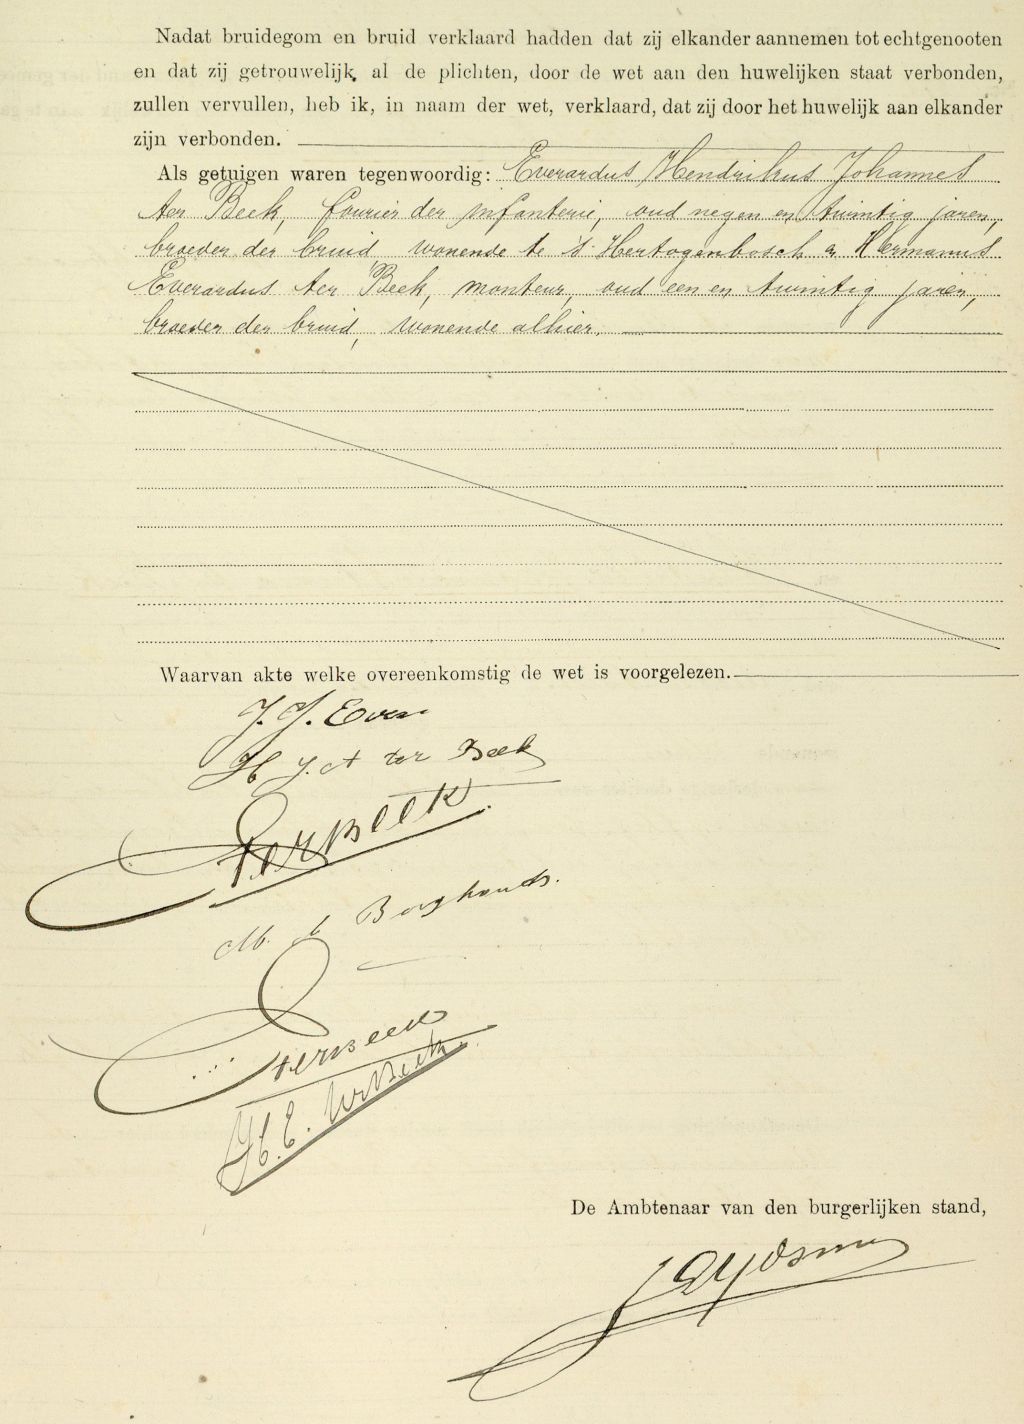 Nadat bruidegom en bruid verklaard hadden dat zij elkander aannemen tot echtgenooten
en dat zij getrouwelijk al de plichten, door de wet aan den huwelijken staat verbonden,
zullen vervullen, heb ik, in naam der wet, verklaard, dat zij door het huwelijk aan elkander
zijn verbonden.
Als getuigen waren tegenwoordig: Everardus Hendrikus Johannes
ter Beek, fourier der infanterie, oud negen en twintig jaren,
broeder der bruid, wonende te 's Hertogenbosch & Hermanus
Everardus ter Beek, monteur, oud een en twintig jaren,
broeder der bruid, wonende alhier.
Waarvan akte welke overeenkomstig de wet is voorgelezen.
J. J. Evers
H J. A ter Beek
terBeek
M. Borghouds.
terBeek
H. E. terBeek
De Ambtenaar van den burgerlijken stand,